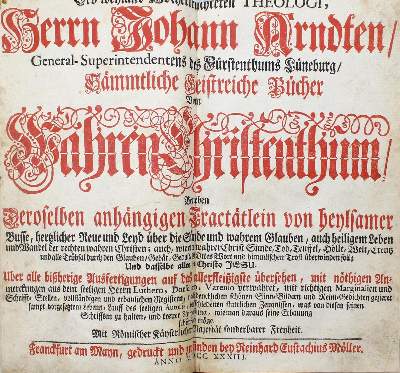 THEOLOGI,
Herrn Johann Arndten/
General-Superintendentens des Fürstenthums Lüneburg/
Sämmtliche Geistreiche Bücher
Vom
Wahren Christenthum/
Neben
Deroselben anhängigen Tractätlein von heylsamer
Busse, hertzlicher Reue und Leyd über die Sünde und wahrem Glauben, auch heiligem Leben
und Wandel der rechten wahren Christen; auch, wie wahrer Christ Sünde, Tod, Teuffel, Hölle, Welt, Creutz
und alle Trübsal durch den Glauben, Gebät, Gottes Wort und himmlischen Trost überwinden soll:
Und dasselbe alles in Christo JESU.
Uber alle bißherige Ausfertigungen auf das allerfleißigste übersehen, mit nöthigen An-
merckungen aus dem seeligen Herrn Luthero, verwahret, mit richtigen Marginalien und
Schrifft-Stellen, vollständigen und erbaulichen Registern, schönen Sinn-Bildern und Reim-Gedichten gezieret
Schrifften zu halten, daraus seine Erbauung
Mit Römischer Käyserlicher Majestät sonderbarer Freyheit.
Franckfurt am Mayn, gedruckt und zu finden bey Reinhard Eustachius Möller.
ANNO CC XXXIII.